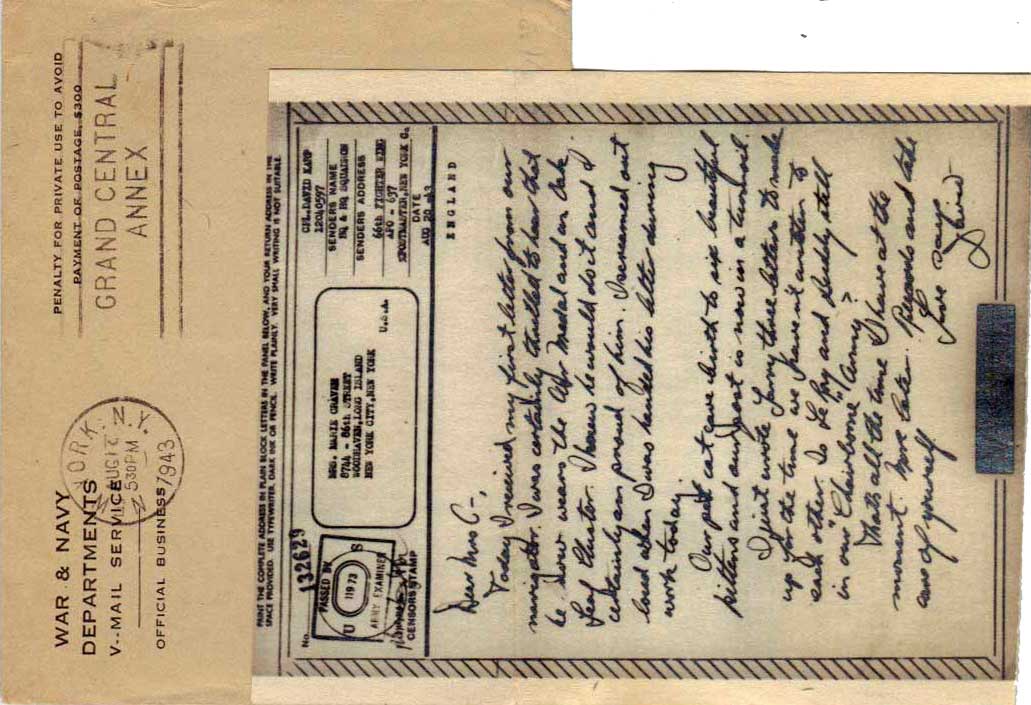 PENALTY FOR PRIVATE USE TO AVOID
PAYMENT OF POSTAGE, $300
GRAND CENTRAL
ANNEX
WAR & NAVY
DEPARTMENTS
V--MAIL SERVICE
OFFICIAL BUSINESS
YORK, N.Y.
AUG
5 30 PM
1943
PRINT THE COMPLETE ADDRESS IN PLAIN BLOCK LETTERS IN THE PANEL BELOW, AND YOUR RETURN ADDRESS IN THE
SPACE PROVIDED. USE TYPEWRITER, DARK INK OR PENCIL. WRITE PLAINLY. VERY SMALL WRITING IS NOT SUITABLE.
No.
132629
PASSED BY
U S
11973
ARMY EXAMINER
CENSORS STAMP
MRS. MARIE CRAVEN
8744 - 86th STREET
WOODHAVEN, LONG ISLAND
NEW YORK CITY, NEW YORK
U.S.A.
CPL. DAVID KARP
SENDERS NAME
HQ & HQ SQUADRON
SENDERS ADDRESS
66th FIGHTER WING
APO - 637
POSTMASTER, NEW YORK C.
DATE
AUG 20 43
ENGLAND
Dear Mrs C-,
Today I received my first letter from our
navigator. I was certainly thrilled to hear that
he now wears the Air Medal and an Oak
Leaf Cluster. I knew he would do it and I
certainly am proud of him. I screamed out
loud when I was handed his letter during
work today.
Our pet cat gave birth to six beautiful
kittens and our post is now in a turmoil.
I just wrote Larry three letters to make
up for the time we haven't written to
each other. Is Le Roy and still
in our "Chairborne" Army?
That's all the time I have at the
moment. More later. Regards and take
care of yourself
Love says